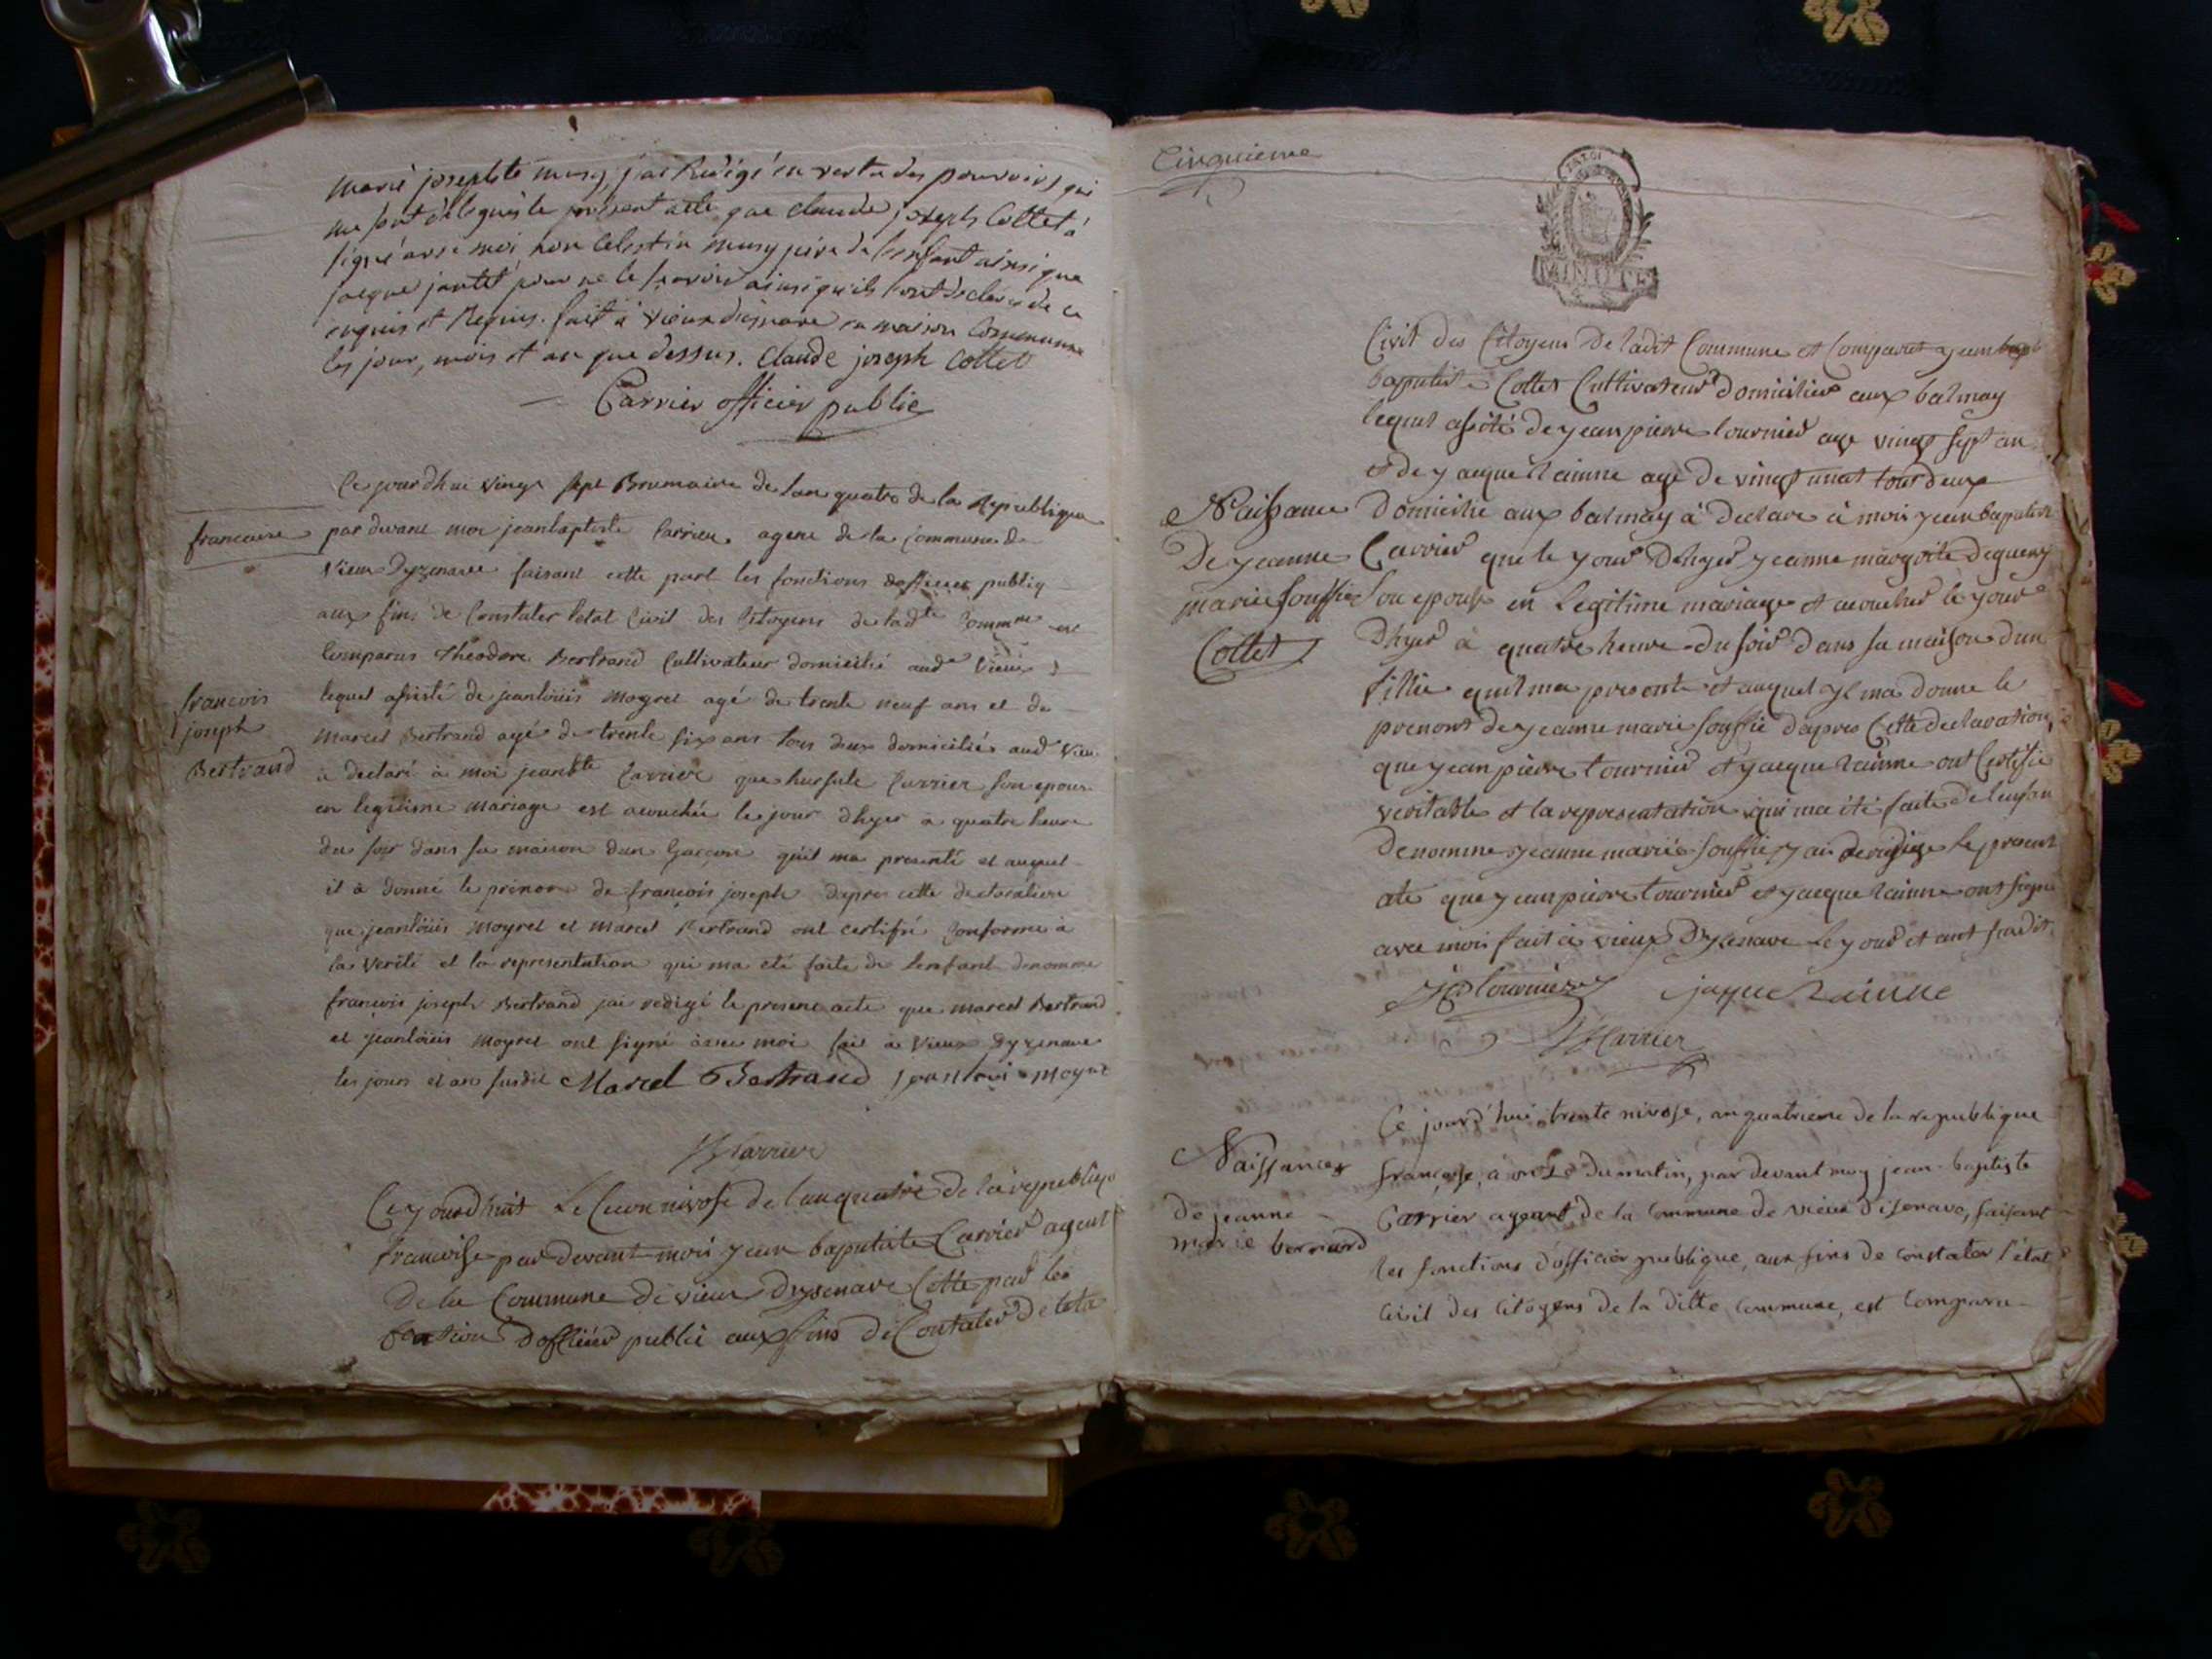 marie josephte musy, j'ai Redigé en vertu des pouvoirs qui
me sont délégués le présent acte que claude joseph Collet à
signé avec moi, non Celestin musy père de l'enfant ainsi que
jacque jantet pour ne le sçavoir ainsi qu'ils l'ont déclaré de ce
enquis et Requis. fait à vieux d'isnave en maison Commune
les jour, mois et an que dessus. Claude joseph Collet
Carrier officier public
Ce jourdhui vingt sept Brumaire de lan quatre de la Republique
francaise par devant moi jeanbaptiste Carrier agent de la Commune de
Vieux Dyzenave faisant cette part les fonctions dofficier publiq
aux fins de Constater letat Civil des Citoyens de ladte Commne est
Comparus Theodore Bertrand Cultivateur domicilié aud Vieux
francois
joseph
Bertrand
lequel assisté de jeanloüis Moyret agé de trente neuf ans et de
Marcel Bertrand agé de trente six ans tous deux domiciliés aud Vieu
à declaré à moi jeanbte Carrier que hursule Carrier son epous
en legitime mariage est acouchée le jour dhyer a quatre heure
du soir dans sa maison dun Garçon quil ma presenté et auquel
il à donné le prénom de françois joseph dapres cette declaration
que jeanloüis Moyret et Marcel Bertrand ont certifié Conforme à
la Verité et la representation qui ma eté faite de lenfant denommé
françois joseph Bertrand jai redigé le present acte que Marcel Bertrand
et jeanloüis Moyret ont signé avec moi fait à Vieux Dyzenave
les jours et an susdit Marcel Bertrand jean loui moyret
JBCarrier
Ce yourdhuit Le nivose de lanquatre de la republique
francoise par devant moi yean baptiste Carrier agent
de la Commune de vieux Dysenave Cette par les
fontion dofficier public aux fins de Contater de leta
Cinquieme
MINUTE
Civil des Citoyens de ladit Commune et Comparut yean bapt
baptiste Collet Cultivateur domicilier aux balmay
lequel asisté de yean pierre tournier age vingt sept an
et de yacque rainne agé de vingt unat tout deux
Naissance
De yeanne
marie souffie
Collet
Domicilie aux balmay à Declare à moi yean baptiste
Carrier que le your Dhyer yeanne margoite deguery
son epouse en Legitime mariage et acoucher le your
Dhyer à quatre heure du soir dans sa maison dun
fillie quil ma presente et auquel yl ma donne le
prenont de yeanne marie souffie dapres Cette declaration
que yean pierre tournier et yacque rainne ont Certifie
veritable et la representation qui ma été faite de lenfan
Denomme yeanne marie souffie yai deredige le present
ate que yean pierre tournier et yacque rainne ont signe
avec moi fait à vieux Dysenave le your et ant susdit
JP tournier jaque Rainne
JBCarrier
Naissances
de jeanne
marie bernard
Ce jourd'hui trente nivose, an quatrieme de la republique
françoise, à onze du matin, par devant moy jean-baptiste
Carrier agent de la Commune de vieux d'isenave, faisant
les fonctions d'officier publique, aux fins de constater l'état
Civil des Citoyens de la ditte commune, est Comparu